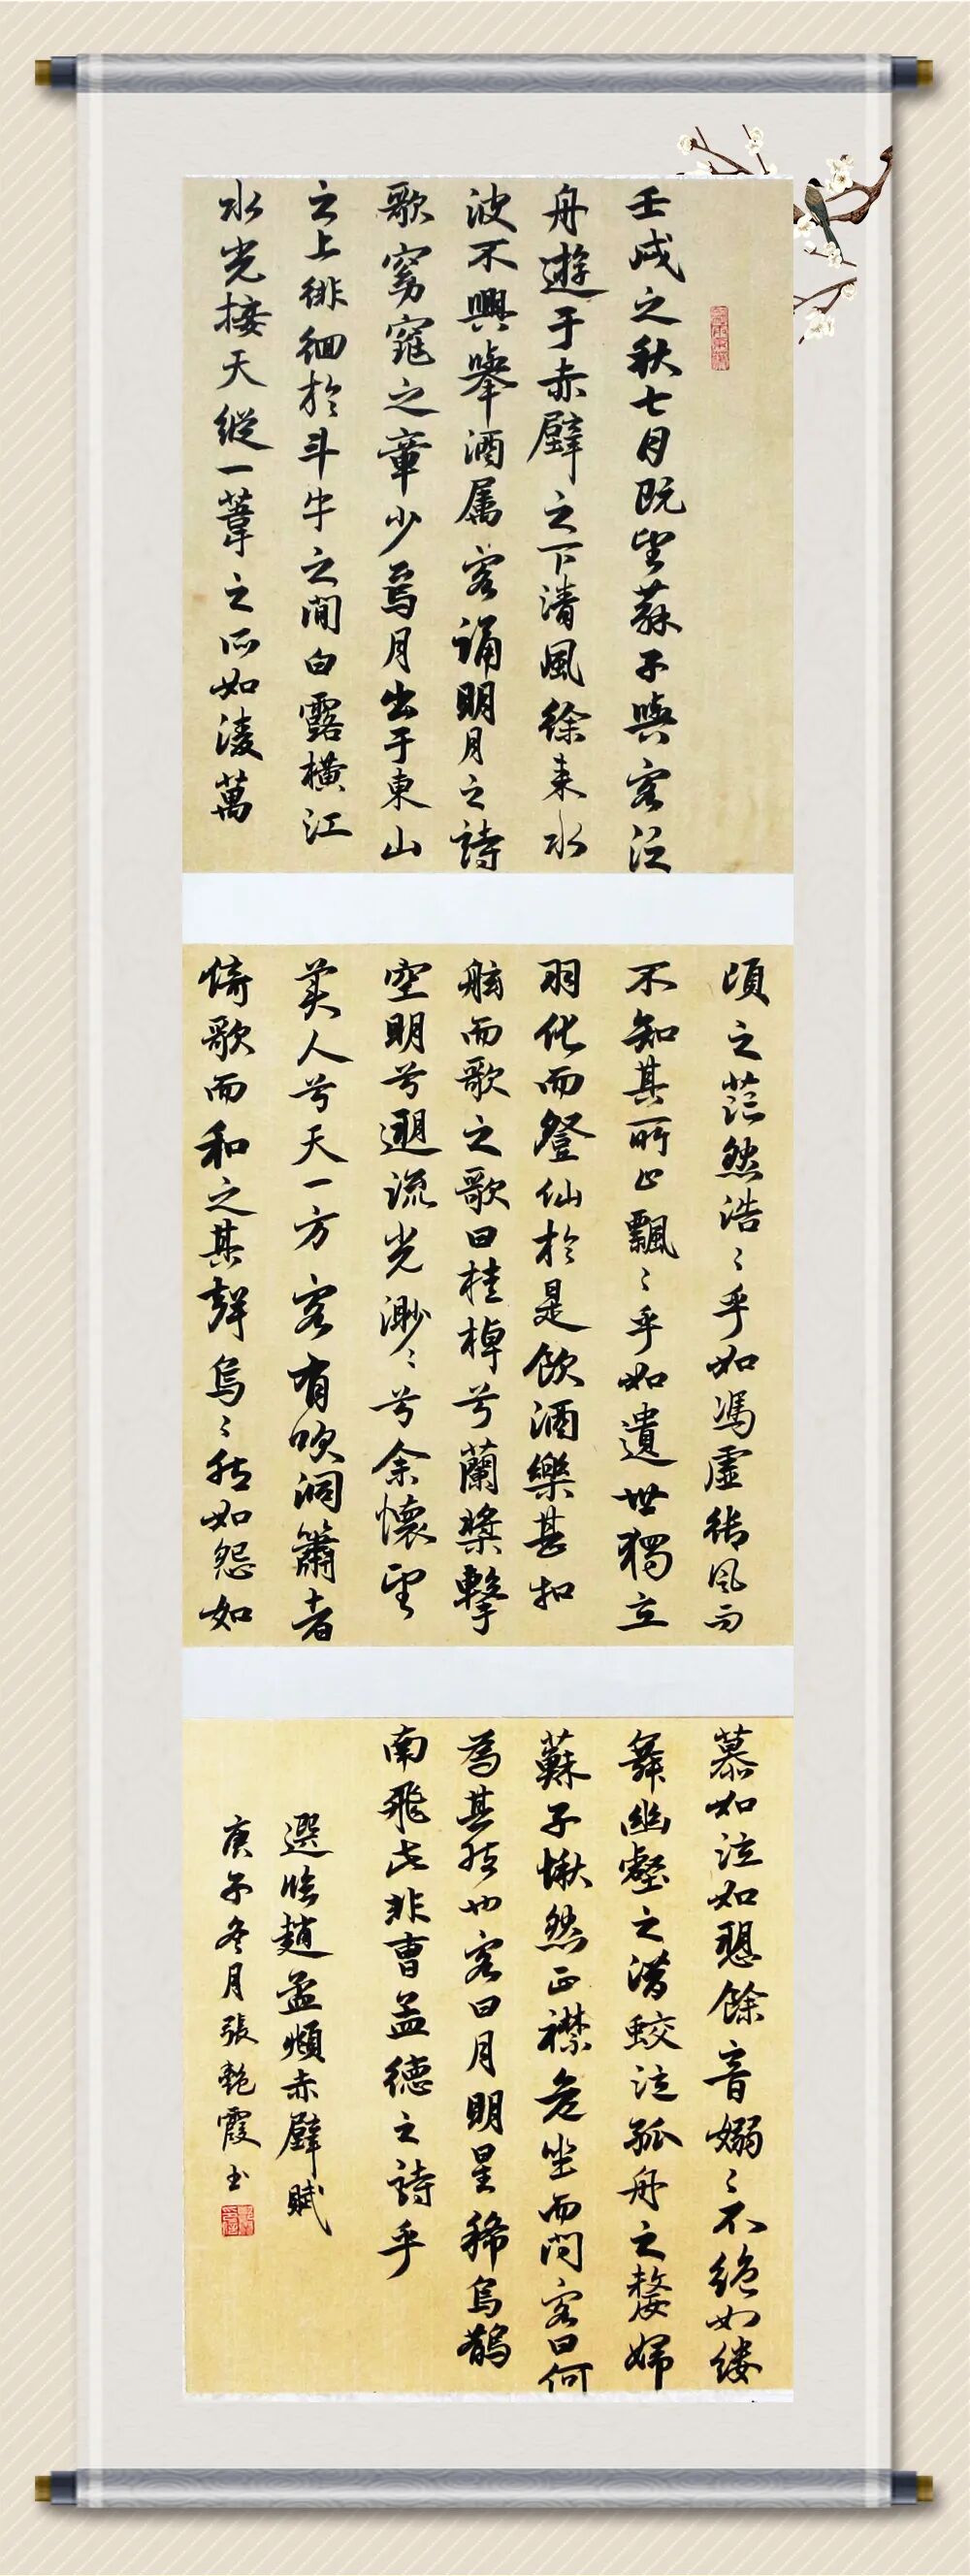 壬戌之秋七月既望蘇子與客泛
舟遊于赤壁之下清風徐来水
波不興舉酒属客誦明月之詩
歌窈窕之章少焉月出于東山
之上徘徊於斗牛之間白露橫江
水光接天縱一葦之所如淩萬
頃之茫然浩〻乎如馮虛御風而
不知其所止飄〻乎如遺世獨立
羽化而登仙於是飲酒樂甚扣
舷而歌之歌曰桂棹兮蘭槳擊
空明兮遡流光渺〻兮余懷望
美人兮天一方客有吹洞簫者
倚歌而和之其聲烏〻然如怨如
慕如泣如愬餘音嫋〻不絕如縷
舞幽壑之潛蛟泣孤舟之嫠婦
蘇子愀然正襟危坐而問客曰何
為其然也客曰月明星稀烏鵲
南飛此非曹孟德之詩乎
選臨趙孟頫赤壁賦
庚子冬月張艷霞書